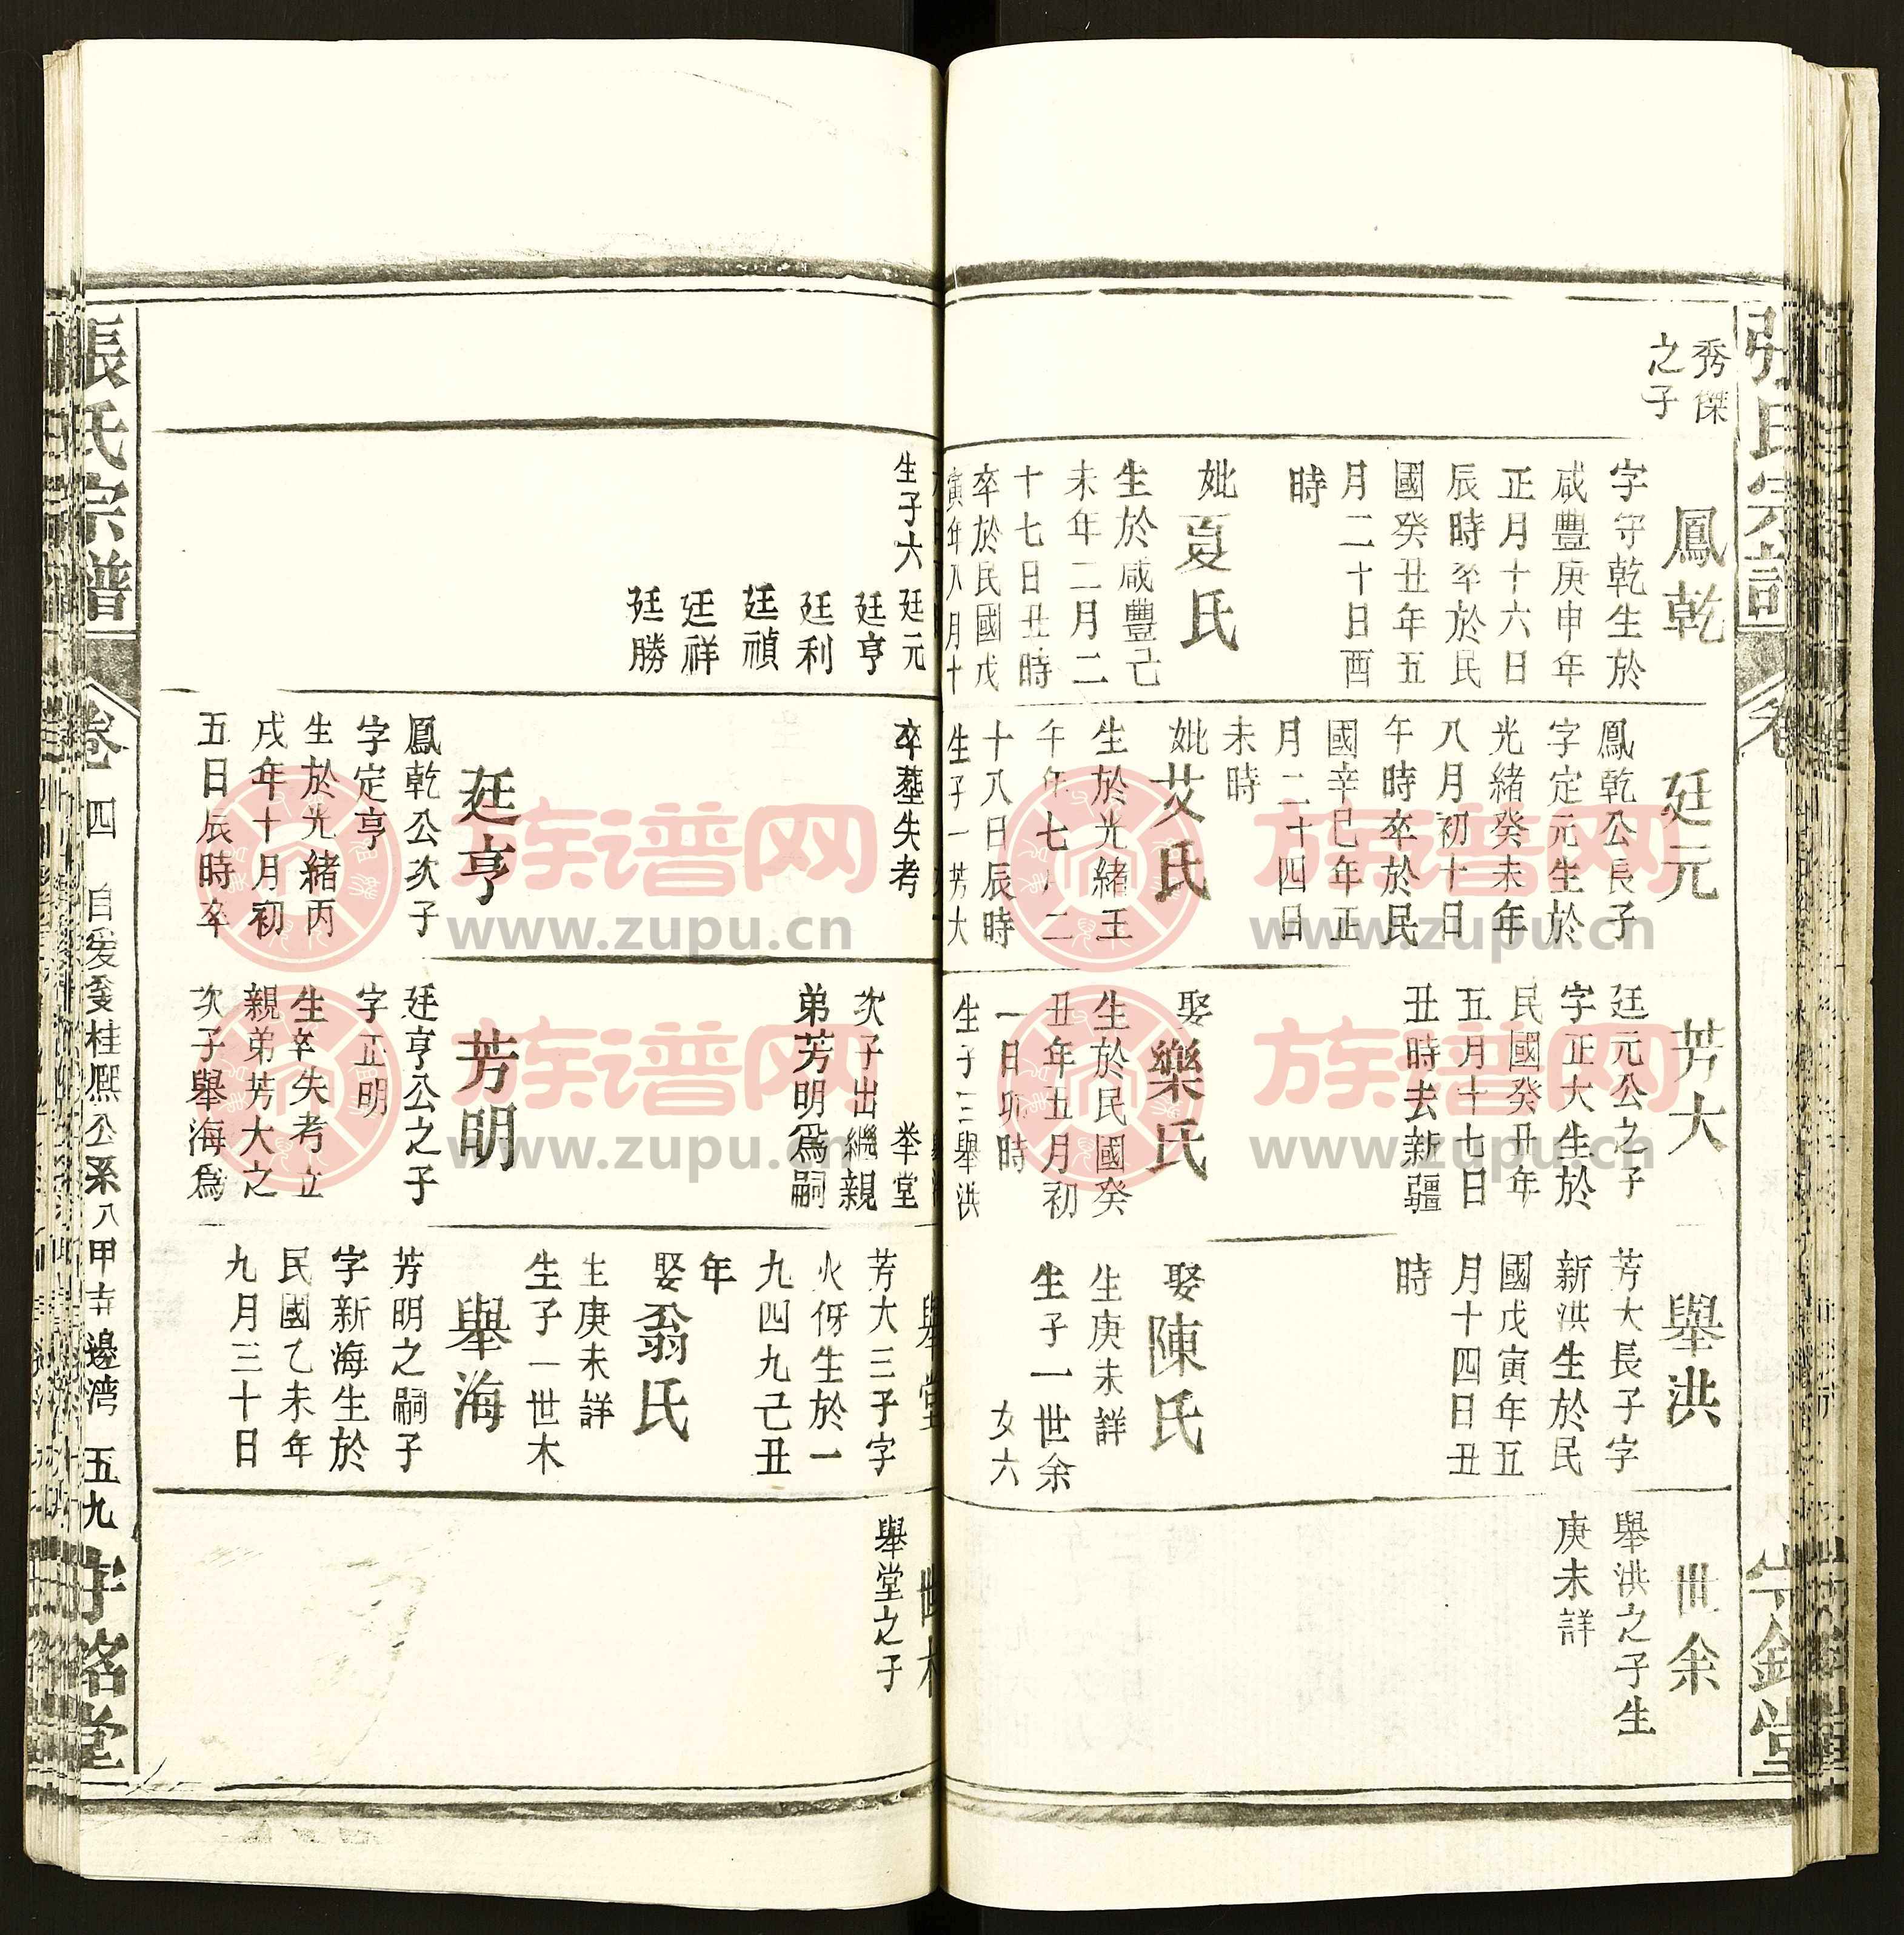 秀傑
之子
鳳乾
字守乾生於
咸豐庚申年
正月十六日
辰時卒於民
國癸丑年五
月二十日酉
時
妣夏氏
生於咸豐己
未年二月二
十七日丑時
卒於民國戊
寅年八月十
生子六
廷元
廷亨
廷利
廷禎
廷祥
廷勝
廷元
鳳乾公長子
字定元生於
光緒癸未年
八月初十日
午時卒於民
國辛巳年正
月二十四日
未時
妣艾氏
生於光緒壬
午年七 二
十八日辰時
生子一芳大
卒塟失考
廷亨
鳳乾公次子
字定亨
生於光緒丙
戌年十月初
五日辰時卒
芳大
廷元公之子
字正大生於
民國癸丑年
五月十七日
丑時去新疆
娶樂氏
生於民國癸
丑年五月初
一日卯時
生子三舉洪
举堂
次子出繼親
弟芳明爲嗣
芳明
廷亨公之子
字正明
生卒失考立
親弟芳大之
次子舉海爲
舉洪
芳大長子字
新洪生於民
國戊寅年五
月十四日丑
時
娶陳氏
生庚未詳
生子一世余
女六
舉堂
芳大三子字
火伢生於一
九四九己丑
年
娶翁氏
生庚未詳
生子一世木
舉海
芳明之嗣子
字新海生於
民國乙未年
九月三十日
世余
舉洪之子生
庚未詳
世木
舉堂之子
張氏宗譜
卷四
桂熙公系八甲
邊湾
五九
堂
族谱网
www.zupu.cn
族谱网
www.zupu.cn
族谱网
www.zupu.cn
族谱网
www.zupu.cn